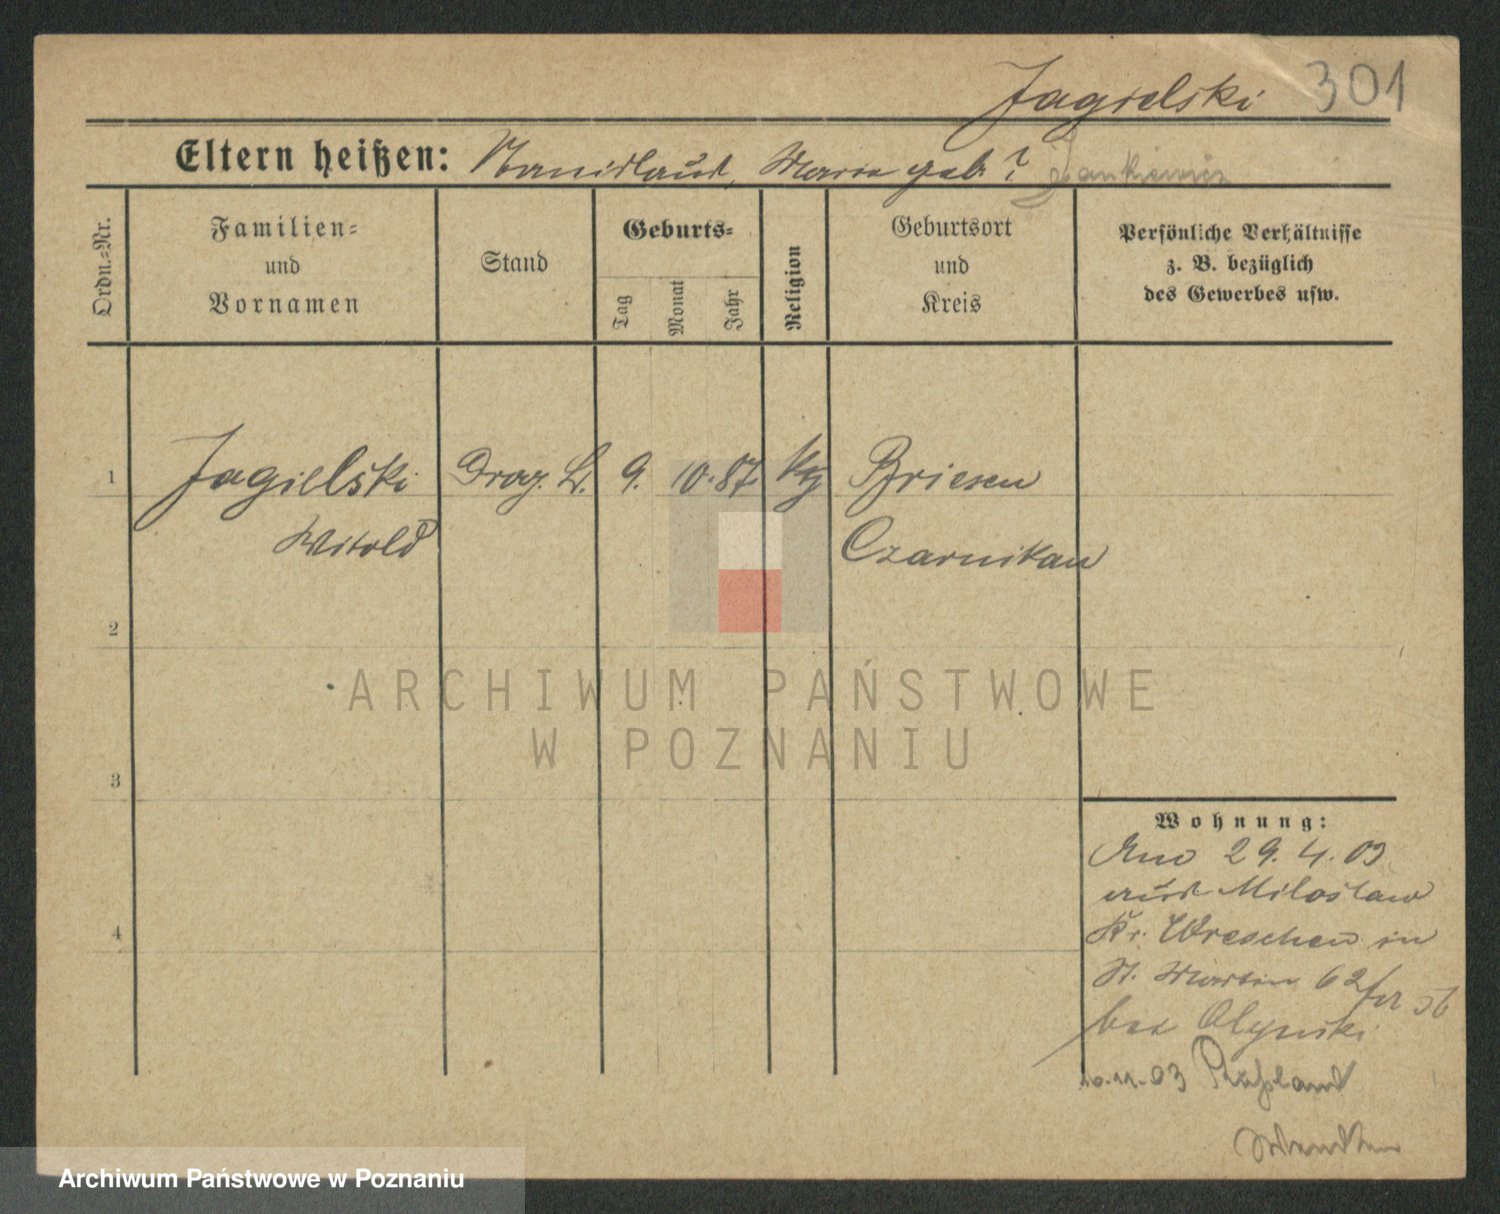 Jagielski 301
Eltern heißen: Stanislaus, Maria geb. ? Jankiewicz
Ordn.-Nr.
Familien-
und
Vornamen
Stand
Geburts-
Tag
Monat
Jahr
Religion
Geburtsort
und
Kreis
Persönliche Verhältnisse
z. B. bezüglich
des Gewerbes usw.
1 Jagielski Drog. L. 9. 10. 87. kg Briesen
Witold Czarnikau
2
ARCHIWUM PAŃSTWOWE
W POZNANIU
3
Wohnung:
29. 4. 03
aus Miloslaw
Kr. Wreschen in
St. Martin 62 fr 56
bei Olynski
10.11.03 Rußland
4
Archiwum Państwowe w Poznaniu